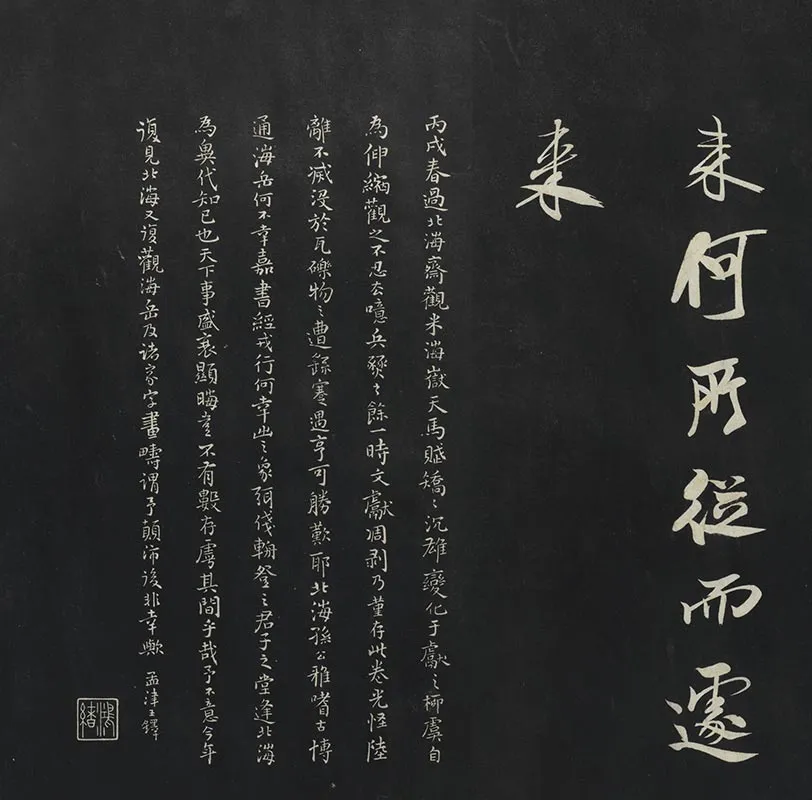 来何所從而遽
来
丙戌春過北海齋觀米海嶽天馬賦矯〻沉雄變化于獻之柳虞自
為伸縮觀之不忍去噫兵燹之餘一時文獻凋剥乃董存此卷光怪陸
離不滅沒於瓦礫物之遭蹇遇亨可勝歎耶北海孫公雅嗜古博
通海岳何不幸嘉書經戎行何幸登之君子之堂逢北海
為異代知已也天下事盛衰顯晦豈不有數存虖其間乎哉予不意今年
復見北海又復觀海岳及諸家字畫疇謂予顛沛後非幸歟 孟津王鐸
鴻緒